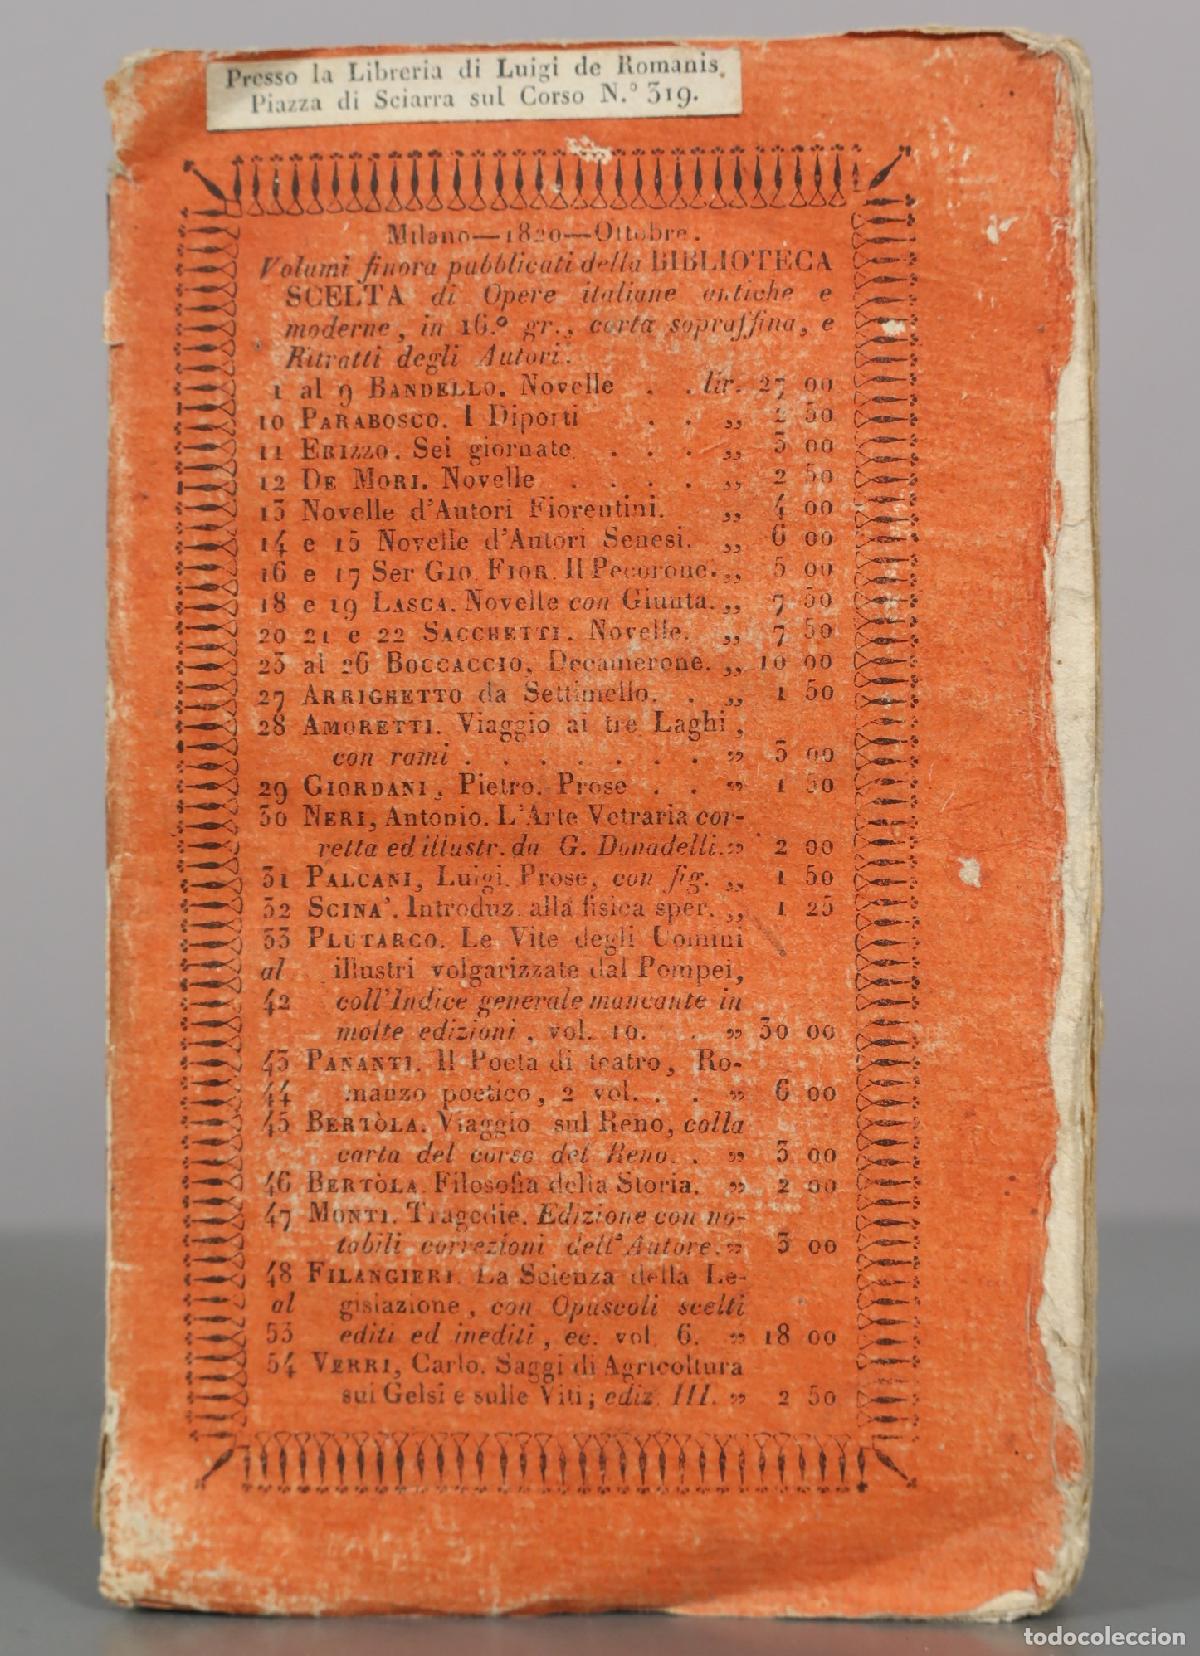 Presso la Libreria di Luigi de Romanis
Piazza di Sciarra sul Corso N.° 319.
Milano—1820—Ottobre.
Volumi finora pubblicati della BIBLIOTECA
SCELTA di Opere italiane antiche e
moderne, in 16.° gr., carta sopraffina, e
Ritratti degli Autori.
1 al 9 BANDELLO. Novelle . . lir. 27 00
10 PARABOSCO. I Diporti . . „ 2 50
11 ERIZZO. Sei giornate . . . „ 3 00
12 DE MORI. Novelle . . . . „ 2 50
13 Novelle d'Autori Fiorentini. „ 4 00
14 e 15 Novelle d'Autori Senesi. „ 6 00
16 e 17 Ser GIO. FIOR. Il Pecorone. „ 5 00
18 e 19 LASCA. Novelle con Giunta. „ 7 50
20 21 e 22 SACCHETTI. Novelle. „ 7 50
23 al 26 BOCCACCIO, Decamerone. „ 10 00
27 ARRIGHETTO da Settimello. . „ 1 50
28 AMORETTI. Viaggio ai tre Laghi,
con rami . . . . . . . „ 3 00
29 GIORDANI, Pietro. Prose . . „ 1 50
30 NERI, Antonio. L'Arte Vetraria cor-
retta ed illustr. da G. Donadelli. „ 2 00
31 PALCANI, Luigi. Prose, con fig. „ 1 50
32 SCINA'. Introduz. alla fisica sper. „ 1 25
33 PLUTARCO. Le Vite degli Uomini
al illustri volgarizzate dal Pompei,
42 coll'Indice generale mancante in
molte edizioni, vol. 10. . „ 30 00
43 PANANTI. Il Poeta di teatro, Ro-
44 manzo poetico, 2 vol. . . „ 6 00
45 BERTÒLA. Viaggio sul Reno, colla
carta del corso del Reno. . „ 3 00
46 BERTÒLA. Filosofia della Storia. „ 2 00
47 MONTI. Tragedie. Edizione con no-
tabili correzioni dell'Autore. „ 3 00
48 FILANGIERI. La Scienza della Le-
al gislazione, con Opuscoli scelti
53 editi ed inediti, ec. vol. 6. „ 18 00
54 VERRI, Carlo. Saggi di Agricoltura
sui Gelsi e sulle Viti; ediz. III. „ 2 50
todocoleccion